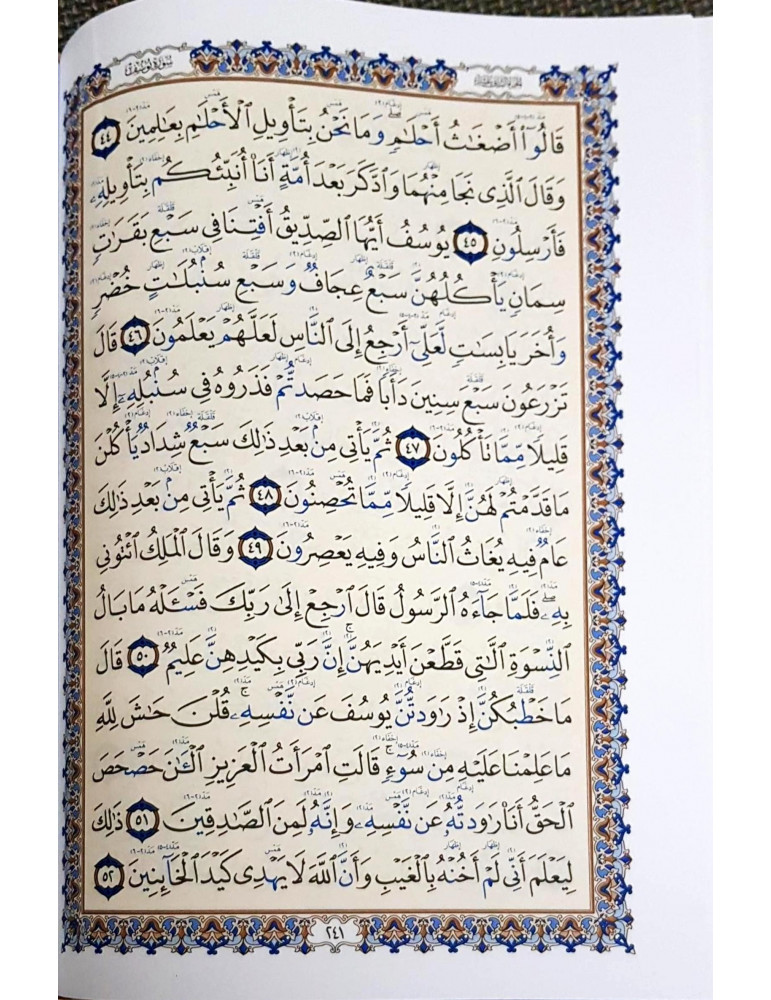 سورة يوسف
الجزء الثاني عشر
قَالُوٓا۟ أَضْغَٰثُ أَحْلَٰمٍۖ وَمَا نَحْنُ بِتَأْوِيلِ ٱلْأَحْلَٰمِ بِعَٰلِمِينَ ٤٤
وَقَالَ ٱلَّذِى نَجَا مِنْهُمَا وَٱدَّكَرَ بَعْدَ أُمَّةٍ أَنَا۠ أُنَبِّئُكُم بِتَأْوِيلِهِۦ
فَأَرْسِلُونِ ٤٥ يُوسُفُ أَيُّهَا ٱلصِّدِّيقُ أَفْتِنَا فِى سَبْعِ بَقَرَٰتٍ
سِمَانٍ يَأْكُلُهُنَّ سَبْعٌ عِجَافٌ وَسَبْعِ سُنۢبُلَٰتٍ خُضْرٍ
وَأُخَرَ يَابِسَٰتٍ لَّعَلِّىٓ أَرْجِعُ إِلَى ٱلنَّاسِ لَعَلَّهُمْ يَعْلَمُونَ ٤٦ قَالَ
تَزْرَعُونَ سَبْعَ سِنِينَ دَأَبًا فَمَا حَصَدتُّمْ فَذَرُوهُ فِى سُنۢبُلِهِۦٓ إِلَّا
قَلِيلًا مِّمَّا تَأْكُلُونَ ٤٧ ثُمَّ يَأْتِى مِنۢ بَعْدِ ذَٰلِكَ سَبْعٌ شِدَادٌ يَأْكُلْنَ
مَا قَدَّمْتُمْ لَهُنَّ إِلَّا قَلِيلًا مِّمَّا تُحْصِنُونَ ٤٨ ثُمَّ يَأْتِى مِنۢ بَعْدِ ذَٰلِكَ
عَامٌ فِيهِ يُغَاثُ ٱلنَّاسُ وَفِيهِ يَعْصِرُونَ ٤٩ وَقَالَ ٱلْمَلِكُ ٱئْتُونِى
بِهِۦۖ فَلَمَّا جَآءَهُ ٱلرَّسُولُ قَالَ ٱرْجِعْ إِلَىٰ رَبِّكَ فَسْـَٔلْهُ مَا بَالُ
ٱلنِّسْوَةِ ٱلَّٰتِى قَطَّعْنَ أَيْدِيَهُنَّۚ إِنَّ رَبِّى بِكَيْدِهِنَّ عَلِيمٌ ٥٠ قَالَ
مَا خَطْبُكُنَّ إِذْ رَٰوَدتُّنَّ يُوسُفَ عَن نَّفْسِهِۦۚ قُلْنَ حَٰشَ لِلَّهِ
مَا عَلِمْنَا عَلَيْهِ مِن سُوٓءٍۚ قَالَتِ ٱمْرَأَتُ ٱلْعَزِيزِ ٱلْـَٰٔنَ حَصْحَصَ
ٱلْحَقُّ أَنَا۠ رَٰوَدتُّهُۥ عَن نَّفْسِهِۦ وَإِنَّهُۥ لَمِنَ ٱلصَّٰدِقِينَ ٥١ ذَٰلِكَ
لِيَعْلَمَ أَنِّى لَمْ أَخُنْهُ بِٱلْغَيْبِ وَأَنَّ ٱللَّهَ لَا يَهْدِى كَيْدَ ٱلْخَآئِنِينَ ٥٢
٢٤١